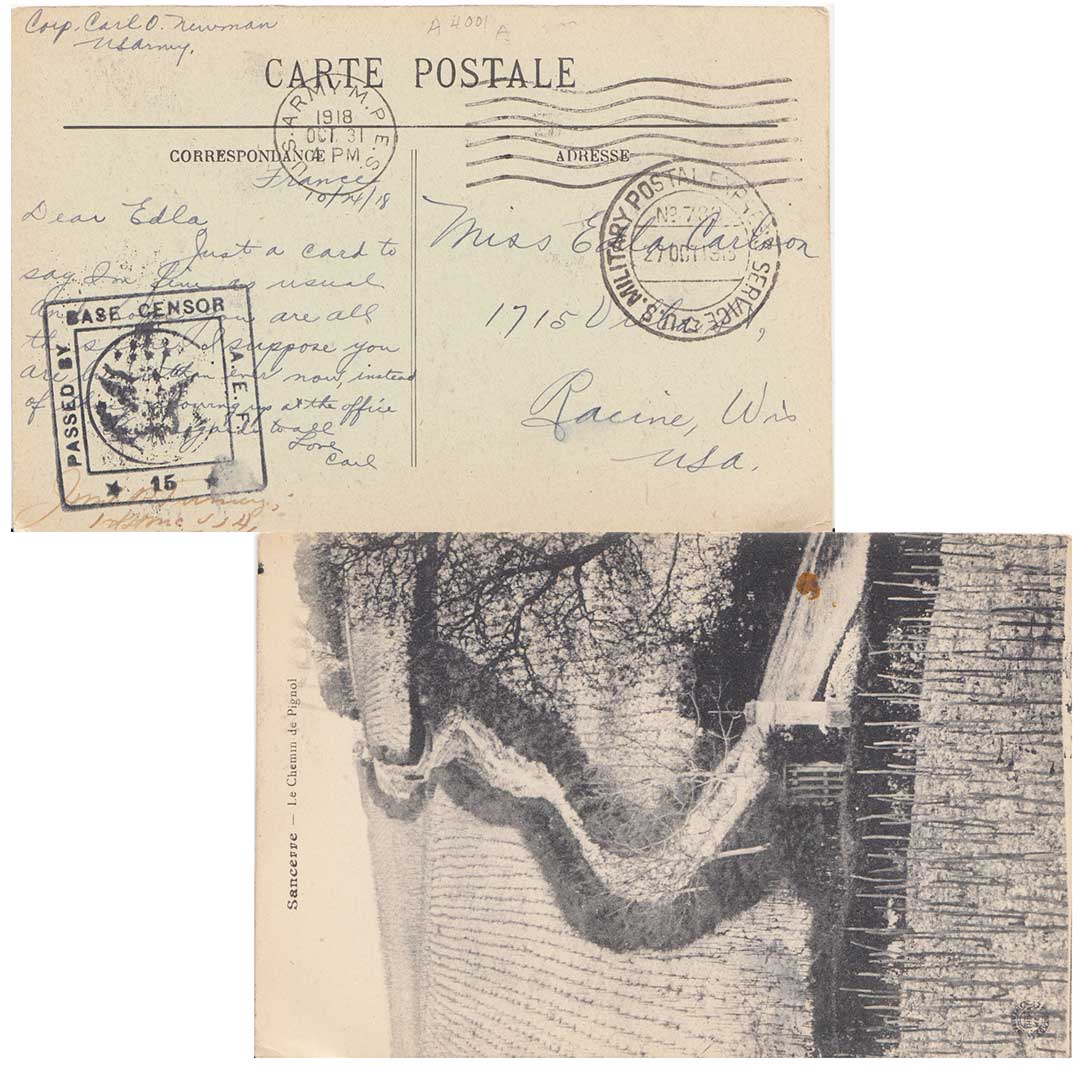 Corp. Carl O. Newman
US Army.
A 4001 A
CARTE POSTALE
U.S. ARMY M.P.E.S.
1918
OCT 31
PM
CORRESPONDANCE
ADRESSE
France
10/24/18
Dear Edla
Just a card to
say I'm fine as usual
you are all
the suppose you
are than ever now, instead
of up at the office
to all
Love
Carl
PASSED BY BASE CENSOR A.E.F.
★ 15 ★
U.S. MILITARY POSTAL EXPRESS SERVICE
No
27 OCT 1918
Miss Edla Carlson
1715
Racine, Wis
USA.
Sancerre — Le Chemin de Pignol